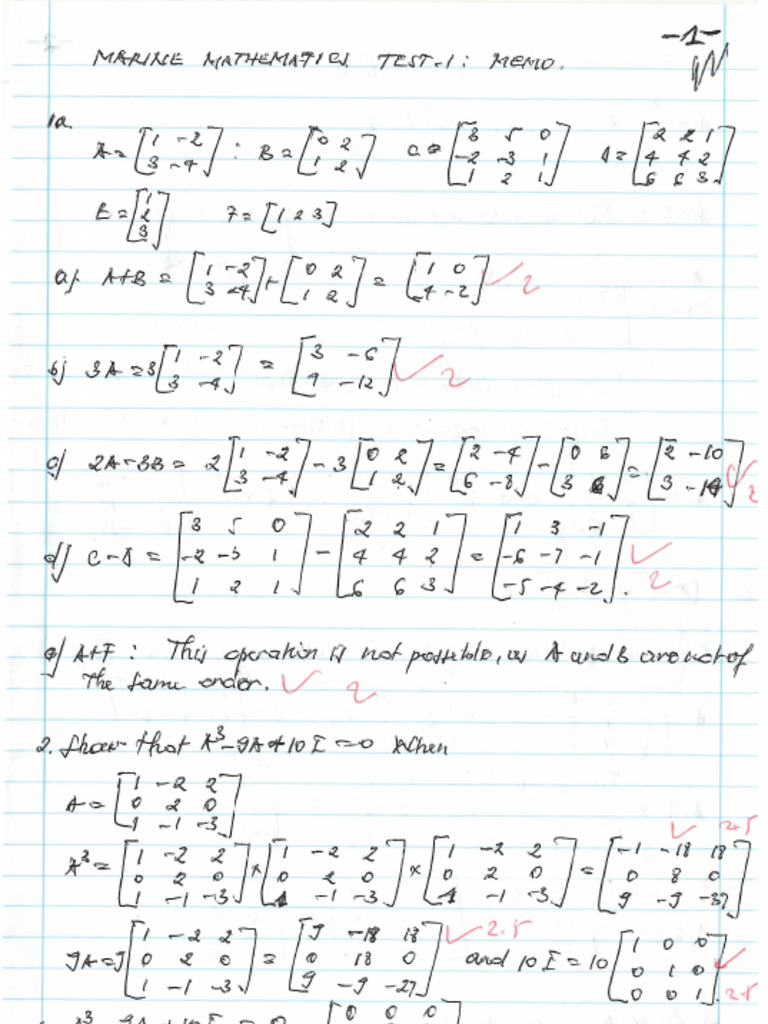 -1-
MARINE MATHEMATICS TEST-1: MEMO.
1a.
A = [1 -2; 3 -4] : B = [0 2; 1 2] C = [3 5 0; -2 -3 1; 1 2 1] D = [2 2 1; 4 4 2; 6 6 3]
E = [1; 2; 3] F = [1 2 3]
a) A+B = [1 -2; 3 -4] + [0 2; 1 2] = [1 0; 4 -2] ✓ 2
b) 3A = 3[1 -2; 3 -4] = [3 -6; 9 -12] ✓ 2
c) 2A-3B = 2[1 -2; 3 -4] - 3[0 2; 1 2] = [2 -4; 6 -8] - [0 6; 3 6] = [2 -10; 3 -14] ✓ 2
d) C-D = [3 5 0; -2 -3 1; 1 2 1] - [2 2 1; 4 4 2; 6 6 3] = [1 3 -1; -6 -7 -1; -5 -4 -2]. ✓ 2
e) A+F : This operation is not possible, as A and B are not of
the same order. ✓ 2
2. Show that A³-9A+10I=0 when
A = [1 -2 2; 0 2 0; 1 -1 -3]
✓ 2.5
A³ = [1 -2 2; 0 2 0; 1 -1 -3] × [1 -2 2; 0 2 0; 1 -1 -3] × [1 -2 2; 0 2 0; 1 -1 -3] = [-1 -18 18; 0 8 0; 9 -9 -37]
9A = 9[1 -2 2; 0 2 0; 1 -1 -3] = [9 -18 18; 0 18 0; 9 -9 -27] ✓ 2.5 and 10I = 10[1 0 0; 0 1 0; 0 0 1] ✓ 2.5
0 0 0